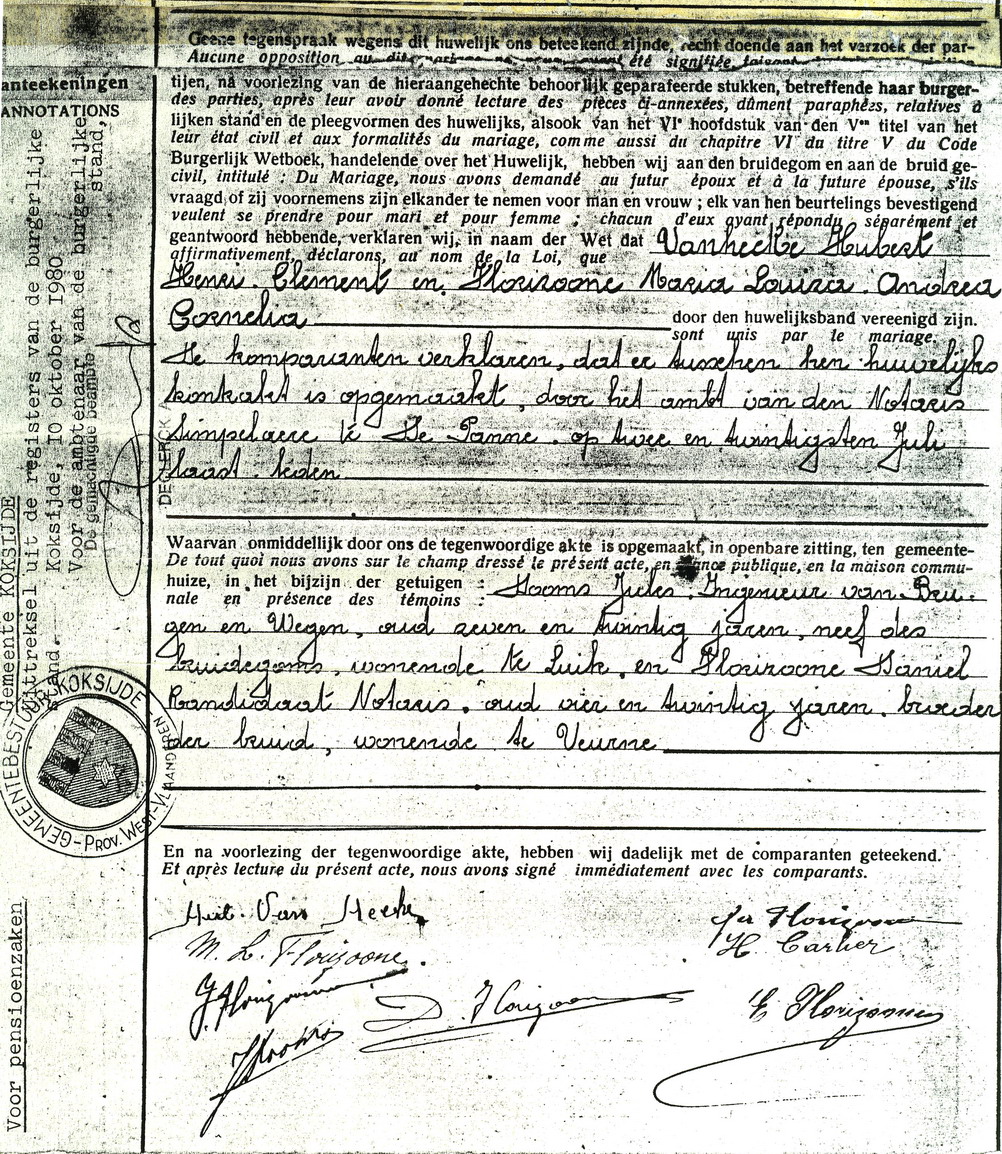 Geene tegenspraak wegens dit huwelijk ons beteekend zijnde, recht doende aan het verzoek der par-
Aucune opposition au été signifiée faisant
tijen, na voorlezing van de hieraangehechte behoorlijk geparafeerde stukken, betreffende haar burger-
des parties, après leur avoir donné lecture des pièces ci-annexées, dûment paraphées, relatives à
lijken stand en de pleegvormen des huwelijks, alsook van het VIe hoofdstuk van den Ven titel van het
leur état civil et aux formalités du mariage, comme aussi du chapitre VI du titre V du Code
Burgerlijk Wetboek, handelende over het Huwelijk, hebben wij aan den bruidegom en aan de bruid ge-
civil, intitulé : Du Mariage, nous avons demandé au futur époux et à la future épouse, s'ils
vraagd of zij voornemens zijn elkander te nemen voor man en vrouw ; elk van hen beurtelings bevestigend
veulent se prendre pour mari et pour femme ; chacun d'eux ayant répondu séparément et
geantwoord hebbende, verklaren wij, in naam der Wet dat Vanheeke Hubert
affirmativement, déclarons, au nom de la Loi, que
Henri. Clement en. Florizoone Maria Louiza. Andrea
Cornelia door den huwelijksband vereenigd zijn.
sont unis par le mariage.
De komparanten verklaren, dat er tusschen hen huwelijks
kontrakt is opgemaakt, door het ambt van den Notaris
Simpelaere te De Panne. op twee en twintigsten Juli
laast leden
Waarvan onmiddellijk door ons de tegenwoordige akte is opgemaakt, in openbare zitting, ten gemeente-
De tout quoi nous avons sur le champ dressé le présent acte, en séance publique, en la maison commu-
huize, in het bijzijn der getuigen : Hooms Jules. Ingenieur van Bru.
nale en présence des témoins :
gen en Wegen, oud zeven en twintig jaren, neef des
bruidegoms, wonende te Luik. en Florizoone Daniel
Kandidaat Notaris. oud vier en twintig jaren. broeder
der bruid, wonende te Veurne
En na voorlezing der tegenwoordige akte, hebben wij dadelijk met de comparanten geteekend.
Et après lecture du présent acte, nous avons signé immédiatement avec les comparants.
M. L. Florizoone.
H. Carlier
J. Florizoone
D. Florizoone
Florizoone
anteekeningen
ANNOTATIONS
Gemeente KOKSIJDE
Uittreksel uit de registers van de burgerlijke
stand.-
Koksijde, IO oktober I980.
Voor de ambtenaar van de burgerlijke
stand,
De gemachtigde beambte
GEMEENTEBESTUUR KOKSIJDE
-PROV. WEST-VLAANDEREN
Voor pensioenzaken